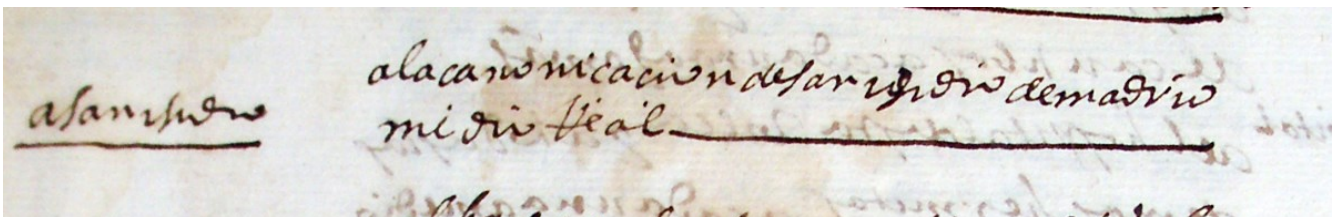 asanisidro
alacanonicacion desanisidro demadrid
medio Real